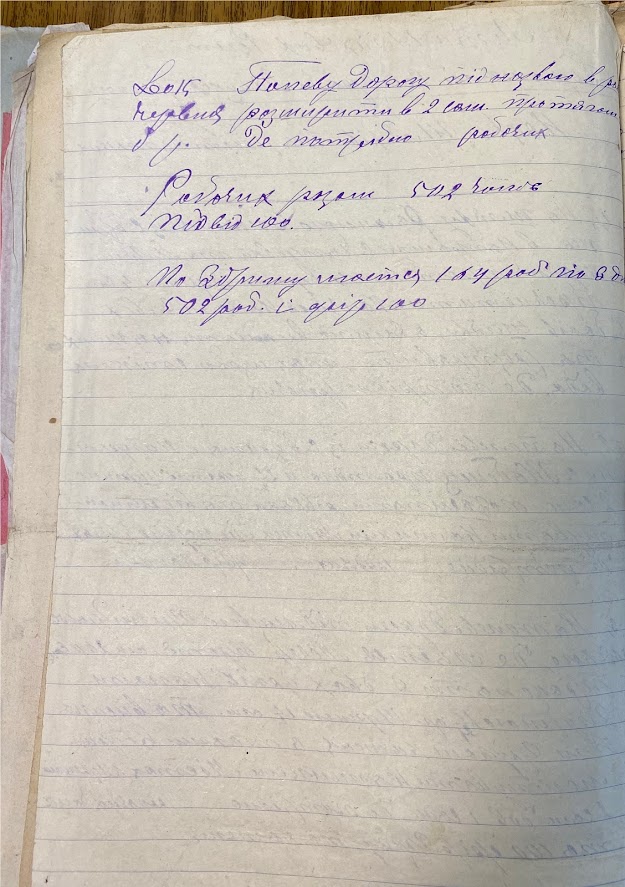 Полеву Дорогу під назвою в
червня розширити в 2 саж. протягом
р. Де потрібно робочих
Робочих разом 502 чолов
підвід 100.
По маєтся 164 роб по 3
502 роб. і 100